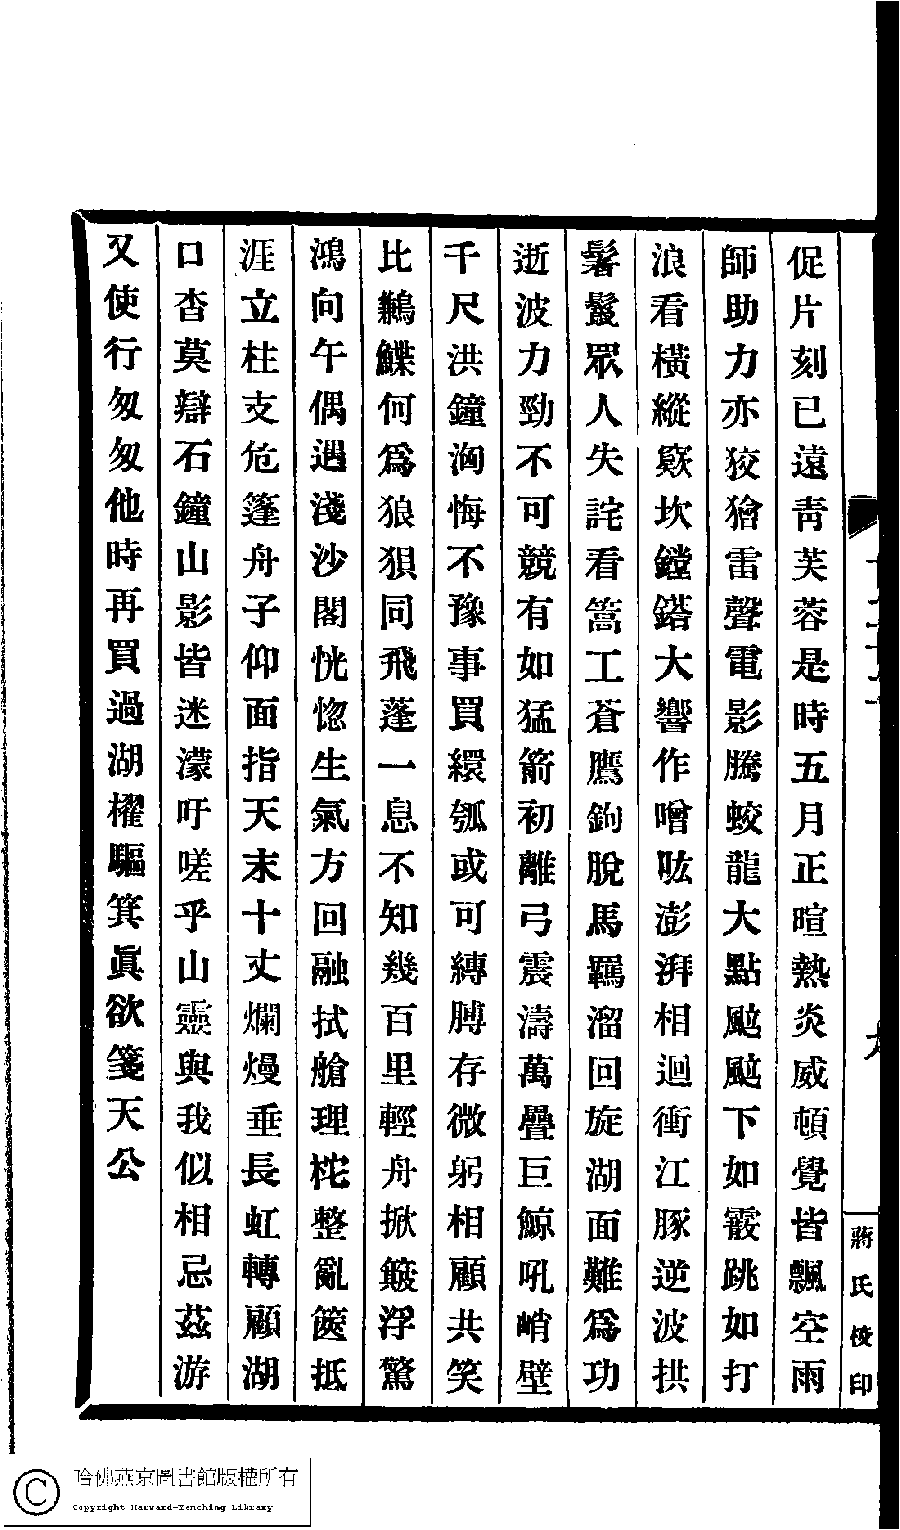 促片刻已遠靑芙蓉是時五月正暄熱炎威頓覺皆飄空雨
師助力亦狡獪雷聲電影騰蛟龍大點颭颭下如霰跳如打
浪看橫縱窾坎鏜鎝大響作噌吰澎湃相迴衝江豚逆波拱
鬐鬣眾人失詫看篙工蒼鷹鉤脫馬羈溜回旋湖面難爲功
逝波力勁不可競有如猛箭初離弓震濤萬疊巨鯨吼峭壁
千尺洪鐘洶悔不豫事買繯瓠或可縛膊存微躬相顧共笑
比鶼鰈何爲狼狽同飛蓬一息不知幾百里輕舟掀簸浮驚
鴻向午偶遇淺沙閣恍惚生氣方回融拭艙理柁整亂篋抵
涯立柱支危篷舟子仰面指天末十丈爛熳垂長虹轉顧湖
口杳莫辯石鐘山影皆迷濛吁嗟乎山靈與我似相忌茲游
又使行匆匆他時再買過湖櫂驅箕眞欲箋天公
蔣氏校印
哈佛燕京圖書館版權所有
Copyright Harvard-Yenching Library